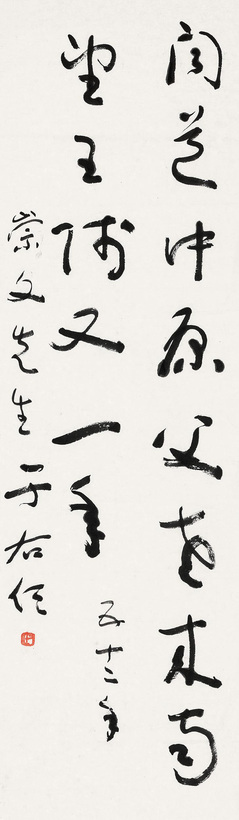 聞道中原父老來南
望王師又一年
五十二年
崇文先生 于右任